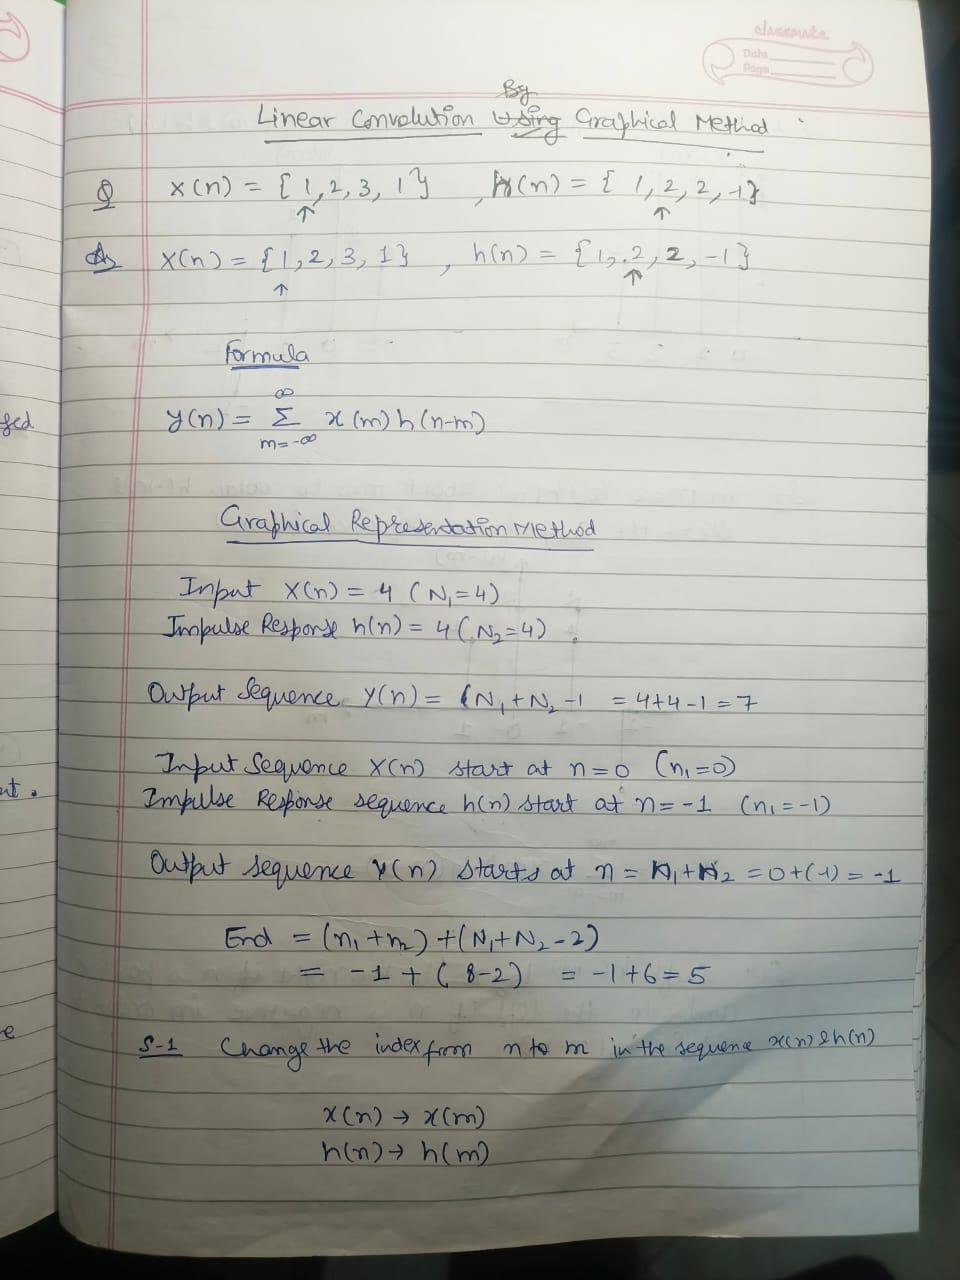 classmate
Date
Page
By
Linear Convolution Using Graphical Method
Q x(n) = { 1, 2, 3, 1 } , h(n) = { 1, 2, 2, -1 }
↑ ↑
A x(n) = { 1, 2, 3, 1 } , h(n) = { 1, 2, 2, -1 }
↑ ↑
Formula
y(n) = ∞ Σ m=-∞ x(m) h(n-m)
Graphical Representation Method
Input x(n) = 4 (N₁=4)
Impulse Response h(n) = 4 (N₂=4)
Output Sequence y(n) = (N₁+N₂-1 = 4+4-1 = 7
Input Sequence x(n) start at n=0 (n₁=0)
Impulse Response sequence h(n) start at n=-1 (n₁=-1)
Output sequence y(n) starts at n = n₁+n₂ = 0+(-1) = -1
End = (n₁+n₂)+(N₁+N₂-2)
= -1 + (8-2) = -1+6 = 5
S-1 Change the index from n to m in the sequence x(n) & h(n)
x(n) → x(m)
h(n) → h(m)